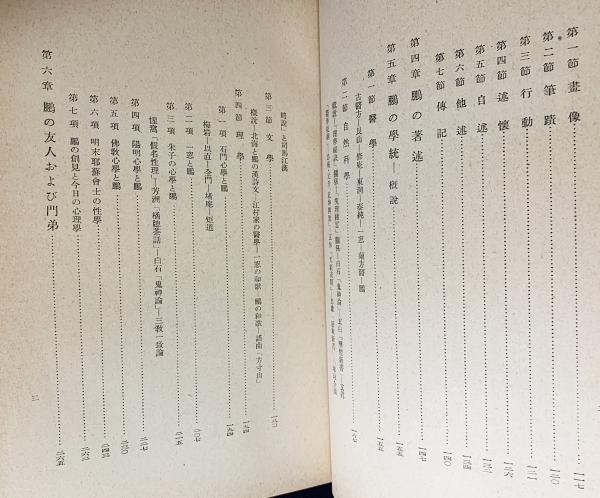 第一節 畫像 一一七
第二節 筆蹟 一二〇
第三節 行動 一二一
第四節 述懷 一二六
第五節 自述 一三一
第六節 他述 一三四
第七節 傳記 一四〇
第四章 鵬の著述 一四七
第五章 鵬の學統―概說 一五五
第一節 醫學 一五五
古醫方―艮山―修庵―東洞―泰純―一恕―蘭方醫―鵬
第二節 自然科學 一六七
略說」と司馬江漢
第三節 文學 一八〇
概說―北海と鵬の漢詩文―江村家の醫學―一恕の和歌―鵬の和歌―謠曲「方寸山」
第四節 理學 一九四
第一項 石門心學と鵬 一九四
梅岩―以直―全門―堵庵―矩道
第二項 一恕と鵬 二〇七
第三項 朱子の心學と鵬 二一五
惺窩「假名性理」―芳洲「橘牕茶話」―白石「鬼神論」―三敎一致論
第四項 陽明心學と鵬 二二七
第五項 佛敎心學と鵬 二三〇
第六項 明末耶蘇會士の性學 二四三
第七項 鵬の創見と今日の心理學 二六三
第六章 鵬の友人および門弟 二六五
三